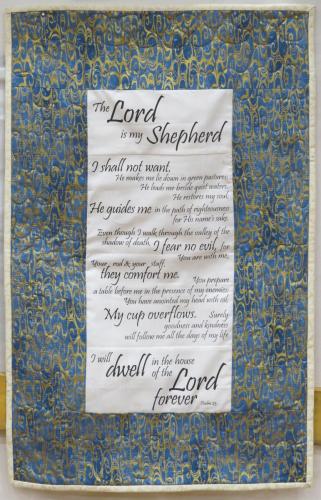 The Lord
is my Shepherd
I shall not want,
He makes me lie down in green pastures,
He leads me beside quiet waters,
He restores my soul,
He guides me in the path of righteousness
for His name's sake.
Even though I walk through the valley of the
shadow of death, I fear no evil, for
You are with me,
Your rod & your staff,
they comfort me. You prepare
a table before me in the presence of my enemies
You have anointed my head with oil;
My cup overflows. Surely
goodness and kindness
will follow me all the days of my life
I will dwell in the house
of the Lord
forever Psalm 23